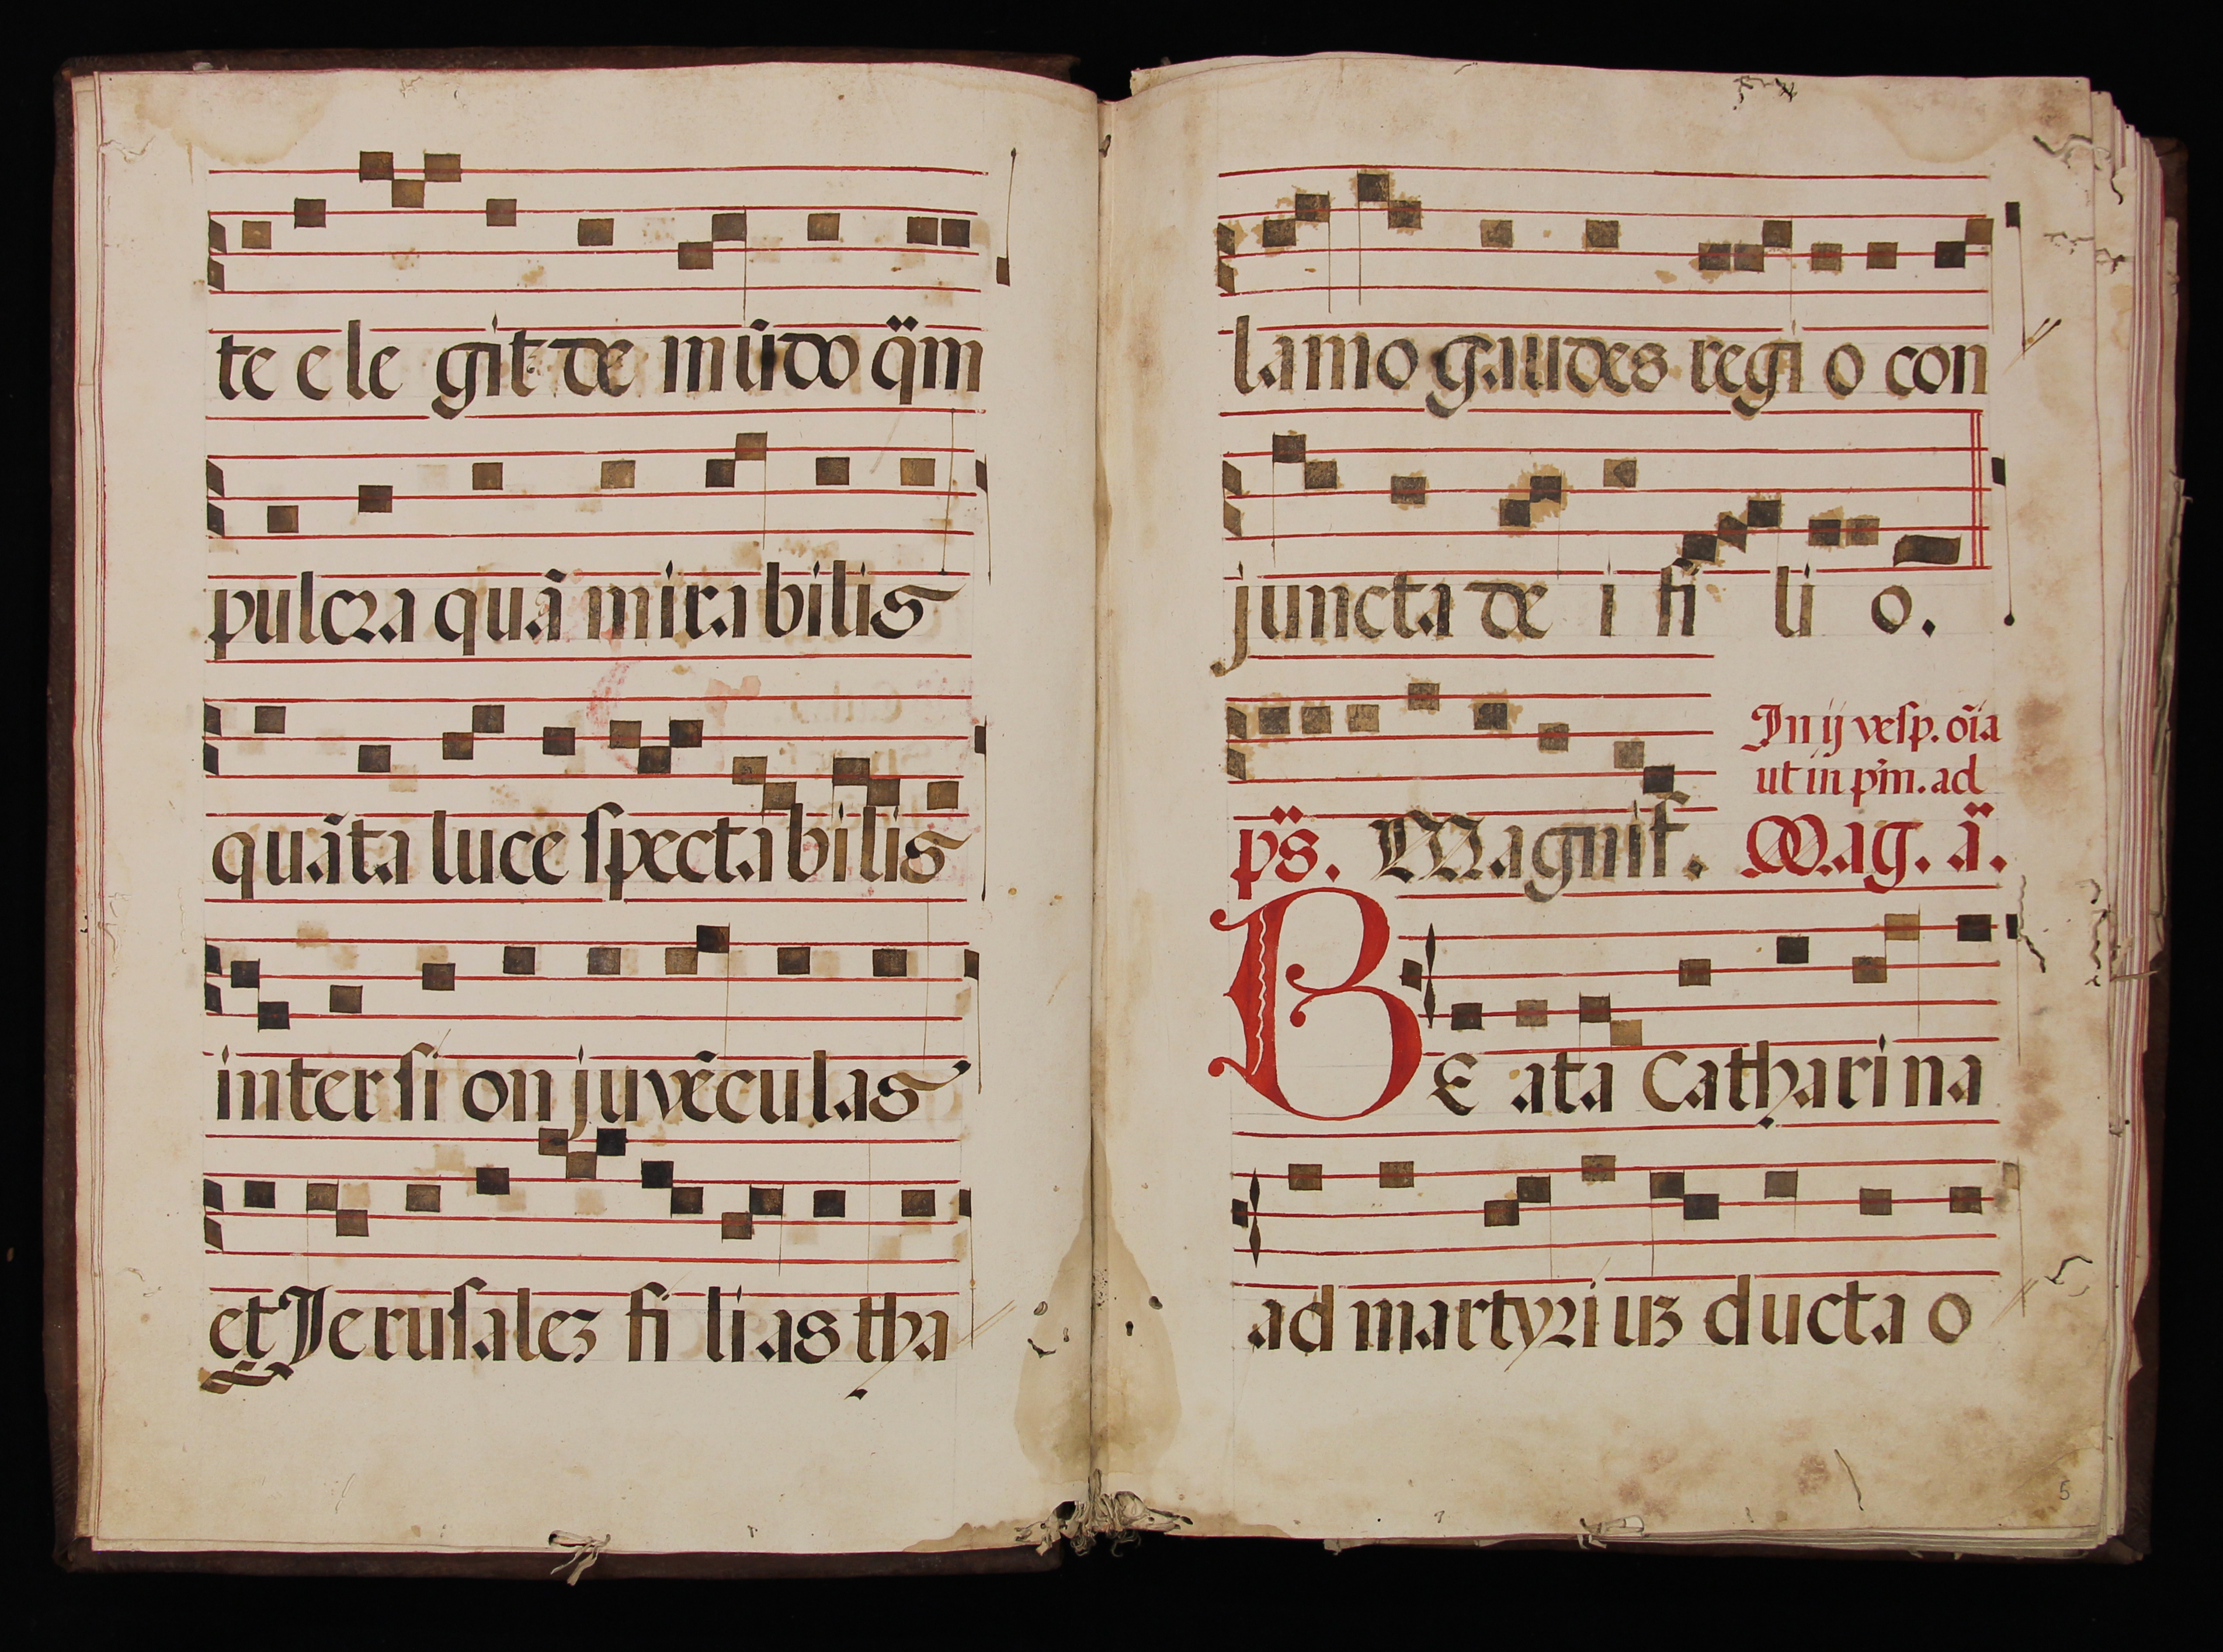 te ele git de mũdo q̈m
pulcra quã mirabilis
quãta luce spectabilis
inter si on juvẽculas
et Jerusalez fi lias tha
lamo gaudes regi o con
juncta de i fi li o.
In ij vesp. oĩa
ut in pm. ad
ps. Magnif. Mag. ä.
BE ata Catharina
ad martyriuz ducta o
5